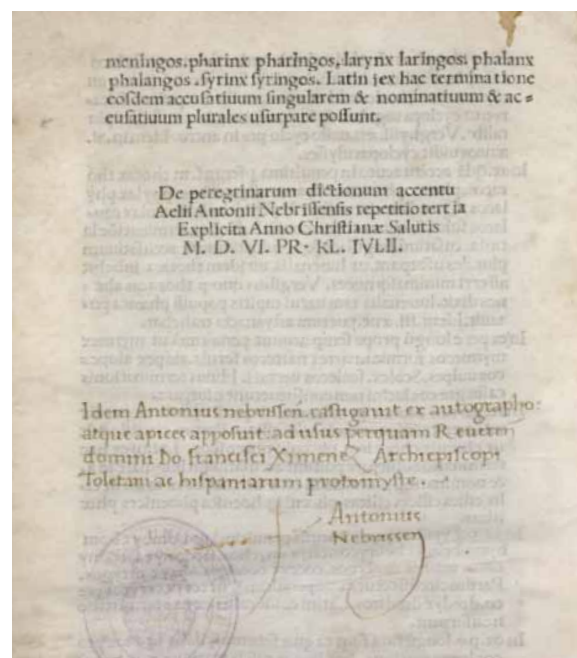 meningos. pharinx pharingos, larynx laringos: phalanx
phalangos . syrinx syringos. Latin iex hac terminatione
eosdem accusatiuum singularem & nominatiuum & ac⸗
cusatiuum plurales usurpare possunt.
De peregrinarum dictionum accentu
Aelii Antonii Nebrissensis repetitio tertia
Explicita Anno Christianæ Salutis
M. D. VI. PR. KL. IVLII.
Idem Antonius nebrissen. castigauit ex autographo:
atque apices apposuit ad usus perquam Reueren
domini Do. francisci Ximenez Archiepiscopi
Toletani ac hispaniarum protomyste.
Antonius
Nebrissen